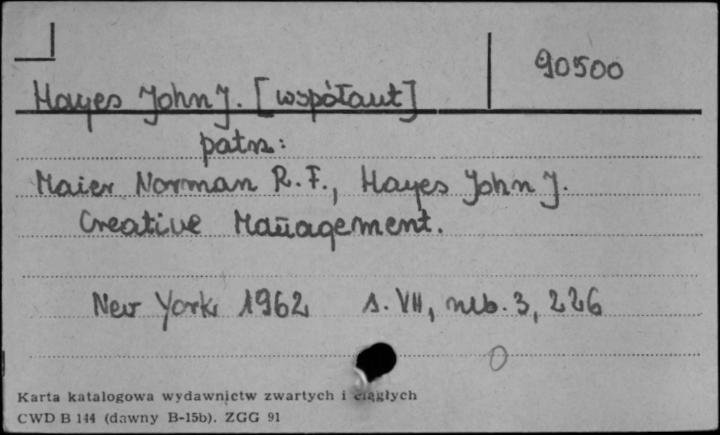 90500
Hayes John J. [współaut]
patrz:
Maier Norman R. F., Hayes John J.
Creative Management.
New York 1962 s. VII, nlb. 3, 226
0
Karta katalogowa wydawnictw zwartych i ciągłych
CWD B 144 (dawny B-15b). ZGG 91